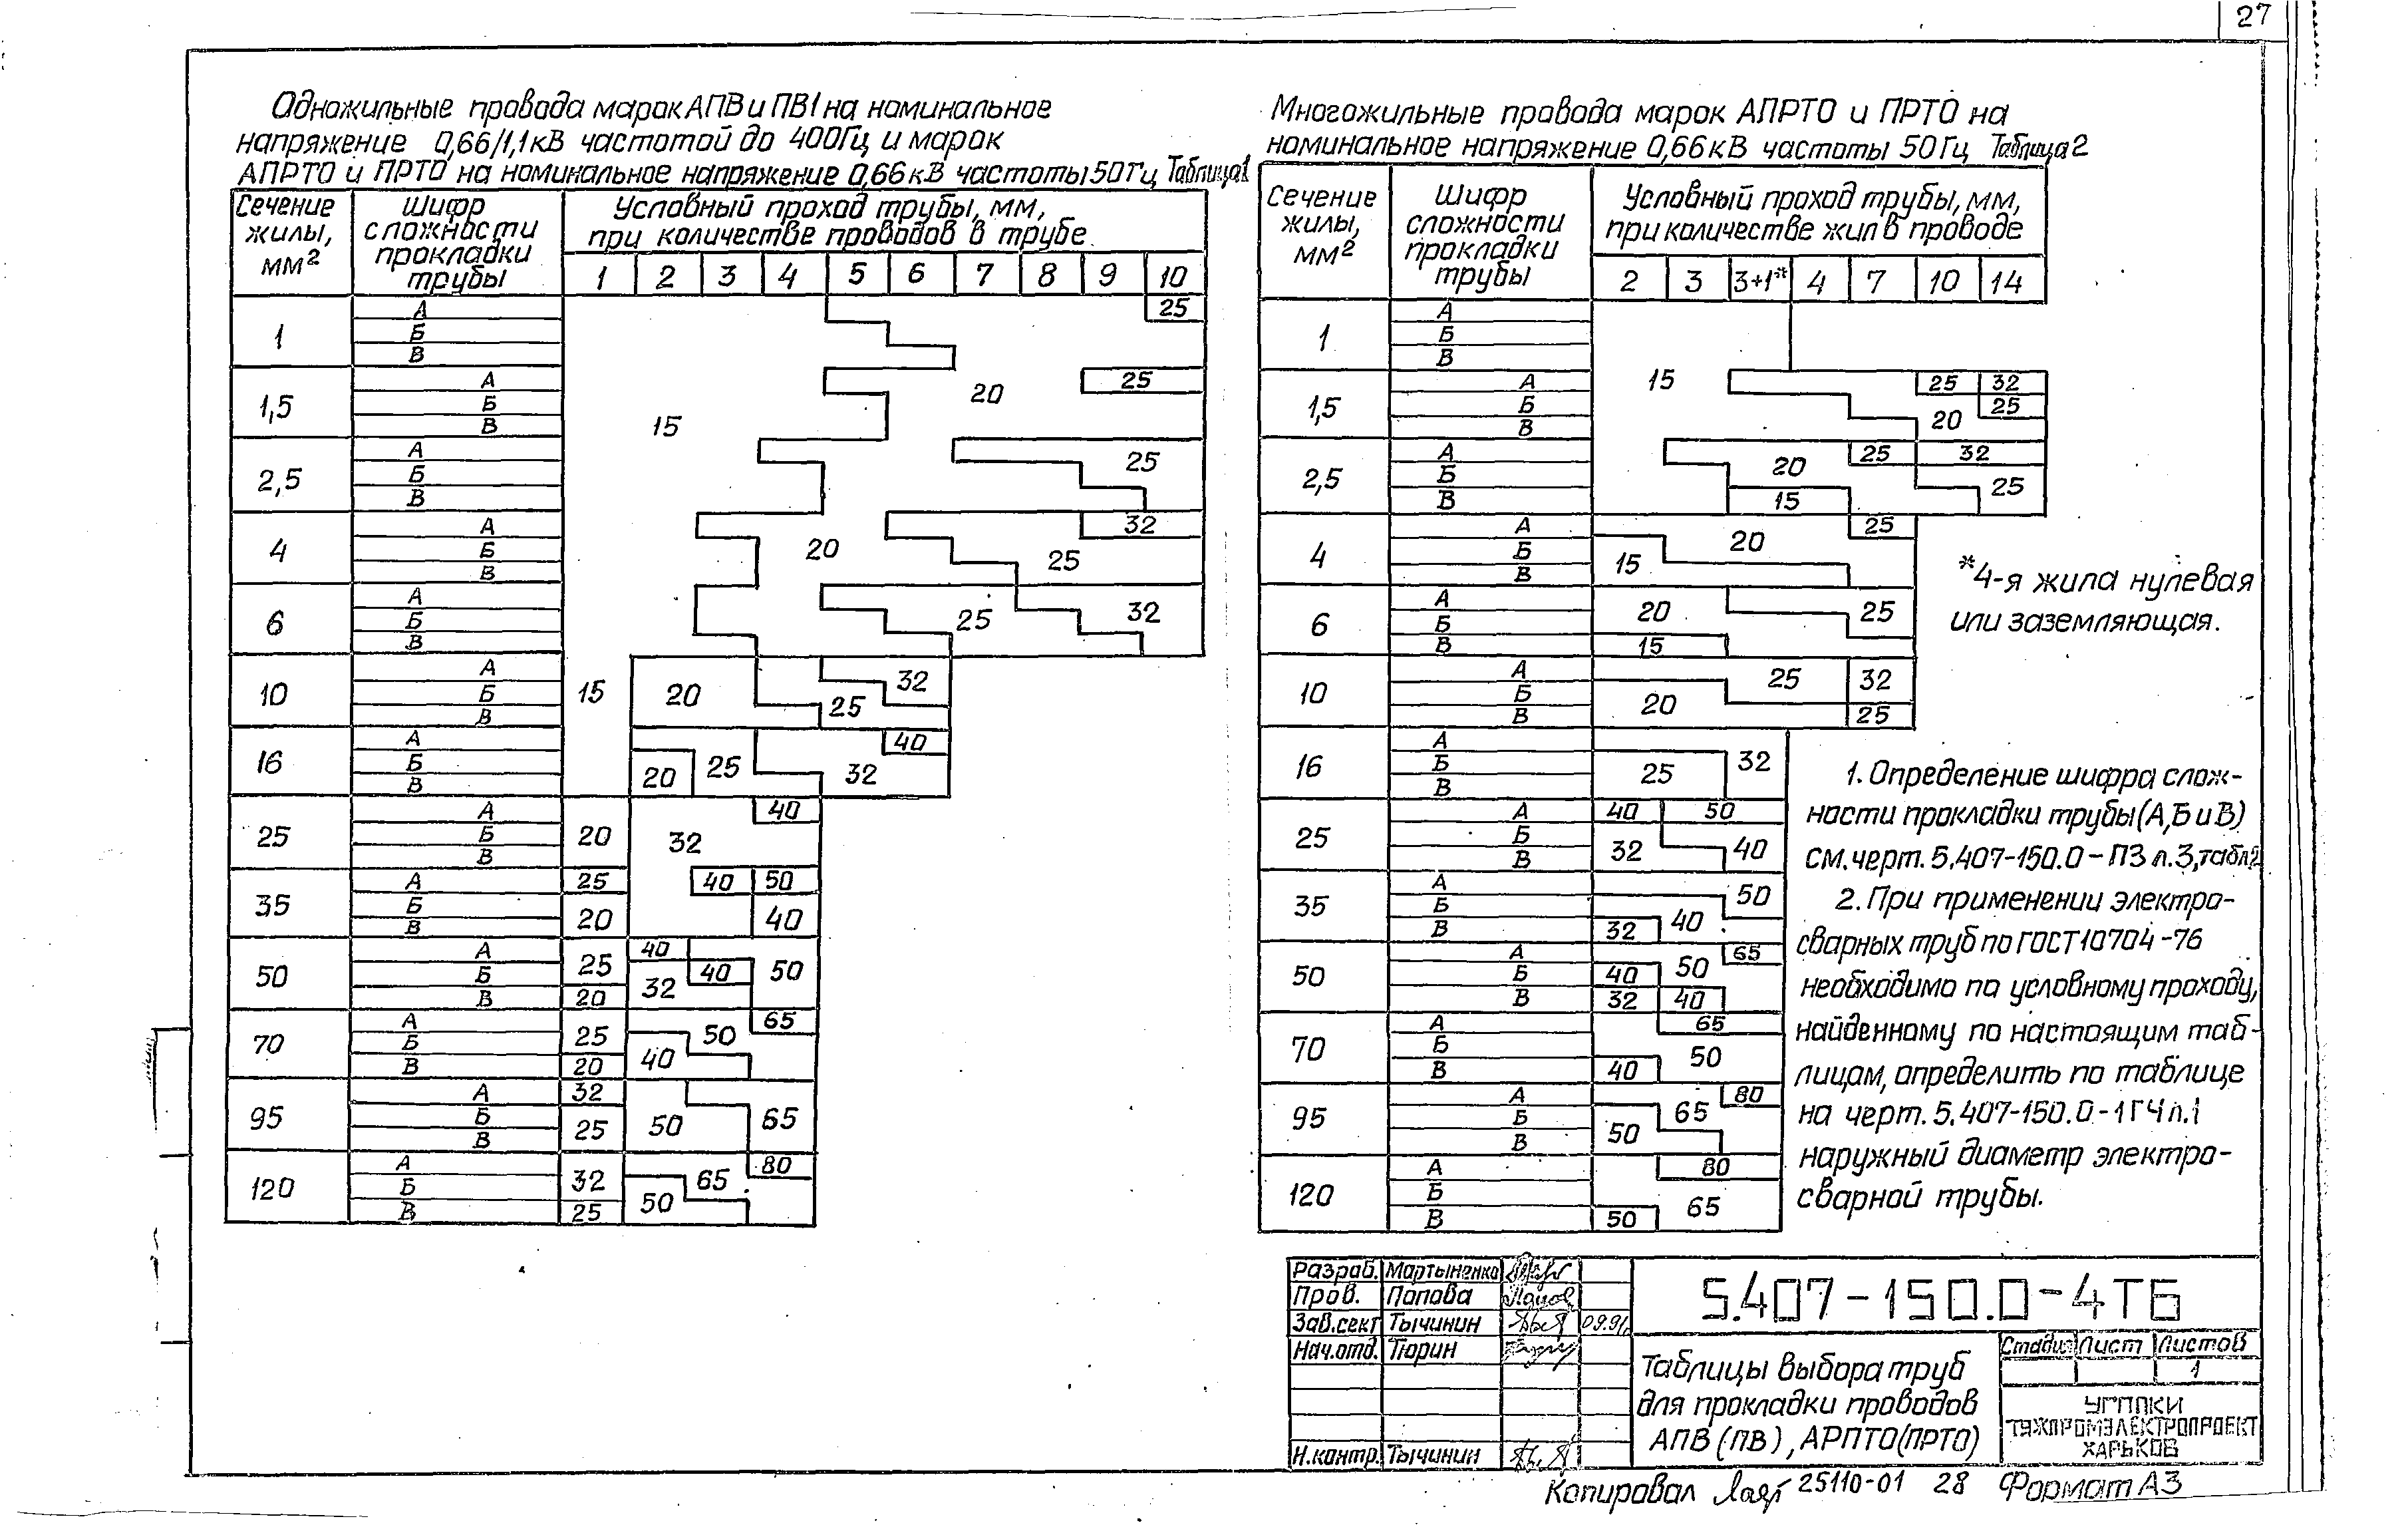 27
Одножильные провода марок АПВ и ПВ1 на номинальное
напряжение 0,66/1,1кВ частотой до 400Гц и марок
АПРТО и ПРТО на номинальное напряжение 0,66кВ частоты 50Гц Таблица1
Сечение жилы, мм²
Шифр сложности прокладки трубы
Условный проход трубы, мм,
при количестве проводов в трубе
1 2 3 4 5 6 7 8 9 10
1
А 25
Б
В
1,5
А 25
Б 15 20
В
2,5
А 25
Б
В
4
А 32
Б 20 25
В
6
А
Б 25 32
В
10
А 32
Б 15 20
В 25
16
А 40
Б 20 25 32
В
25
А 40
Б 20 32
В
35
А 25 40 50
Б 20 40
В
50
А 25 40 50
Б 32 40
В 20
70
А 25 50 65
Б 40
В 20
95
А 32
Б 25 50 65
В
120
А 32 65 80
Б 50
В 25
Многожильные провода марок АПРТО и ПРТО на
номинальное напряжение 0,66кВ частоты 50Гц Таблица2
Сечение жилы, мм²
Шифр сложности прокладки трубы
Условный проход трубы, мм,
при количестве жил в проводе
2 3 3+1* 4 7 10 14
1
А
Б
В
1,5
А 15 25 32
Б 25
В 20
2,5
А 20 25 32
Б 25
В 15
4
А 25
Б 15 20
В
6
А 20 25
Б
В 15
10
А 25 32
Б 20
В 25
16
А 32
Б 25
В
25
А 40 50
Б 32 40
В
35
А 50
Б 40
В 32
50
А 50 65
Б 40
В 32 40
70
А 65
Б 50
В 40
95
А 65 80
Б 50
В
120
А 80
Б 65
В 50
*4-я жила нулевая
или заземляющая.
1. Определение шифра слож-
ности прокладки трубы (А,Б и В)
см. черт. 5.407-150.0-ПЗ л.3, табл2
2. При применении электро-
сварных труб по ГОСТ 10704-76
необходимо по условному проходу,
найденному по настоящим таб-
лицам, определить по таблице
на черт. 5.407-150.0-1ГЧ л.1
наружный диаметр электро-
сварной трубы.
Разраб. Мартыненко
Пров. Попова
Зав.сект Тычинин 09.91г
Нач.отд. Тюрин
Н.контр. Тычинин
5.407-150.0-4ТБ
Таблицы выбора труб
для прокладки проводов
АПВ (ПВ), АРПТО(ПРТО)
Стадия Лист Листов
1
УГППКИ
ТЯЖПРОМЭЛЕКТРОПРОЕКТ
ХАРЬКОВ
Копировал 25110-01 28 Формат А3